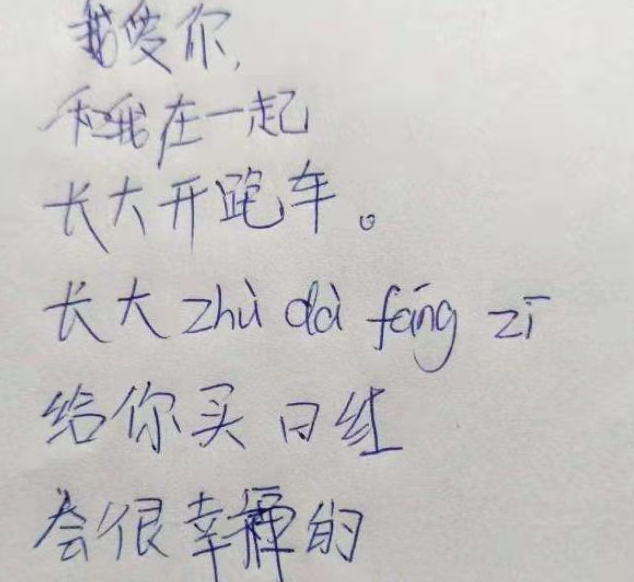 我爱你,
和我在一起
长大开跑车。
长大zhù dà fáng zī
给你买口红
会很幸福的